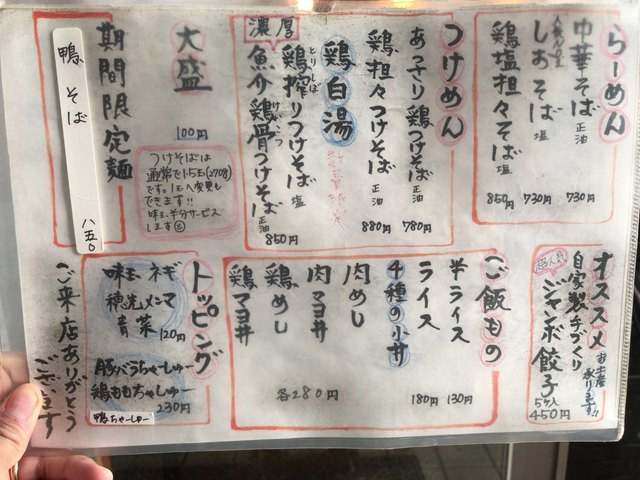 らーめん
中華そば 正油 730円
人気No.1
しおそば 塩 730円
鶏塩担々そば 850円
つけめん
あっさり鶏つけそば 正油 780円
鶏担々つけそば 正油 880円
鶏白湯
数量限定
とりしぼ
鶏搾りつけそば 塩
濃厚
魚介鶏骨つけそば 正油
850円
大盛
100円
つけそばは
通常で1.5玉(270g)
です。1玉へ変更も
できます!!
味玉半分サービス
します
期間限定麺
鴨そば 八五〇
オススメ
お土産
承ります!!
自家製手づくり
超人気
ジャンボ餃子
5ヶ入
450円
ご飯もの
半ライス 130円
ライス 180円
4種の小丼
肉めし
肉マヨ丼
鶏めし
鶏マヨ丼
各280円
トッピング
味玉 ネギ
穂先メンマ
青菜 120円
豚バラちゃーしゅー
鶏ももちゃしゅー
230円
鴨ちゃーしゅー
ご来店ありがとう
ございます